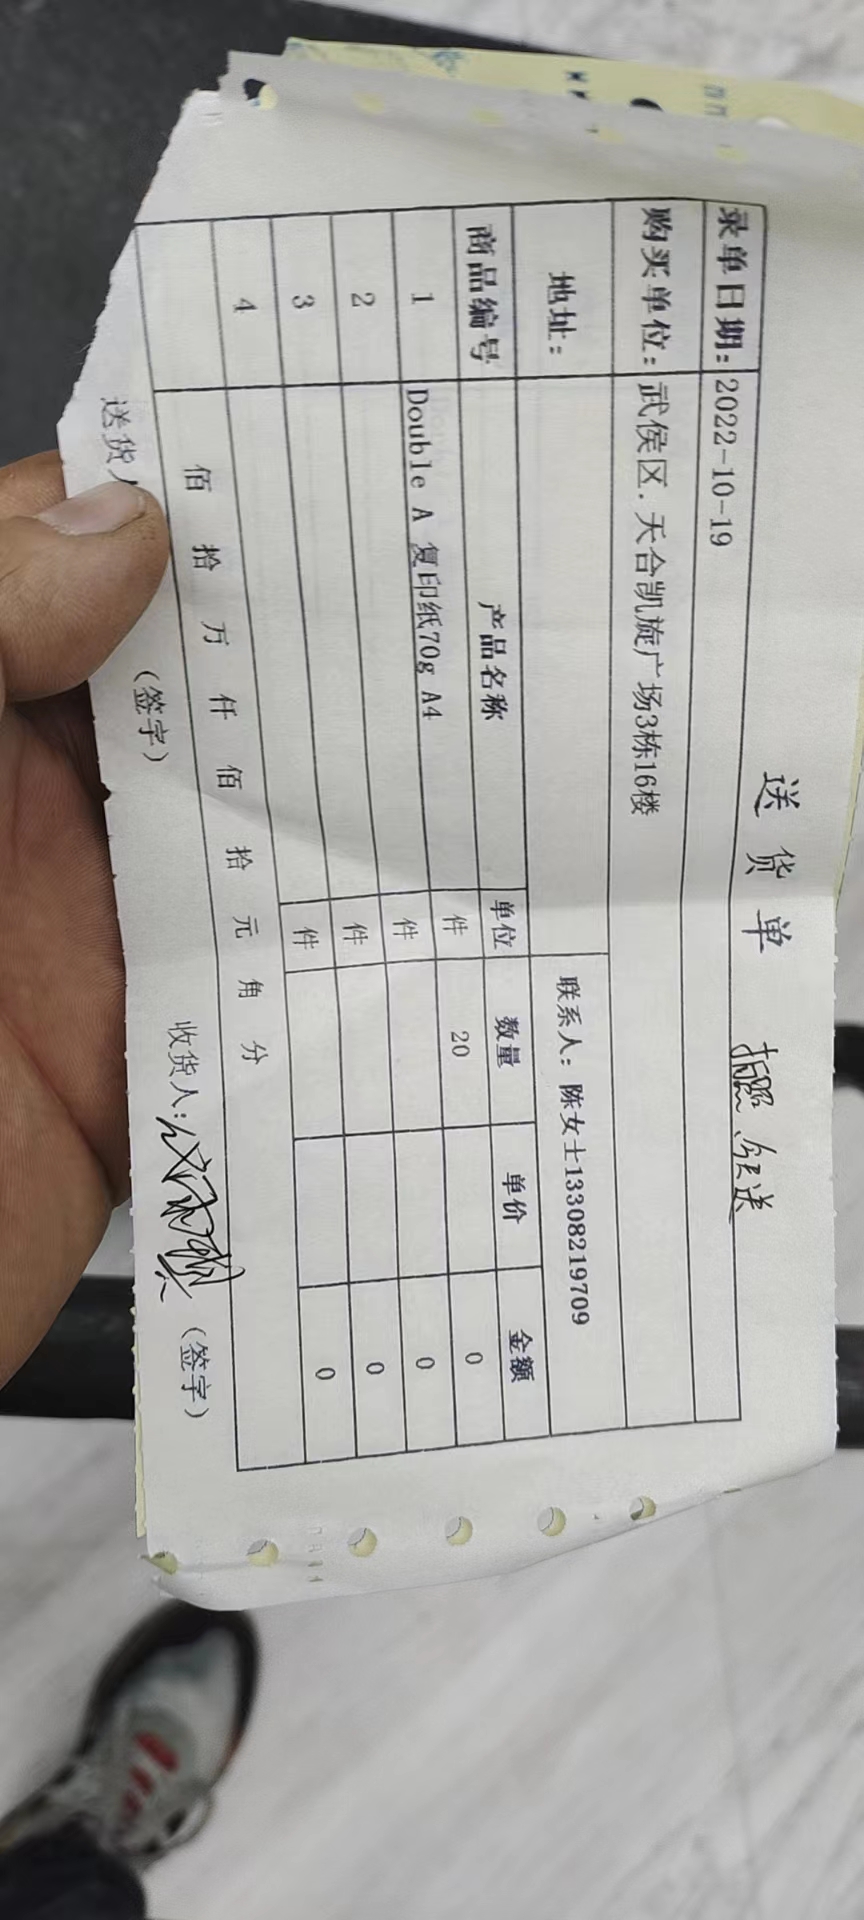 送货单 拍照，今天送
录单日期：2022-10-19
购买单位：武侯区．天合凯旋广场3栋16楼
地址： 联系人：陈女士13308219709
商品编号 产品名称 单位 数量 单价 金额
1 Double A 复印纸70g A4 件 20 0
2 件 0
3 件 0
4 件 0
佰 拾 万 仟 佰 拾 元 角 分
送货人 （签字） 收货人： （签字）